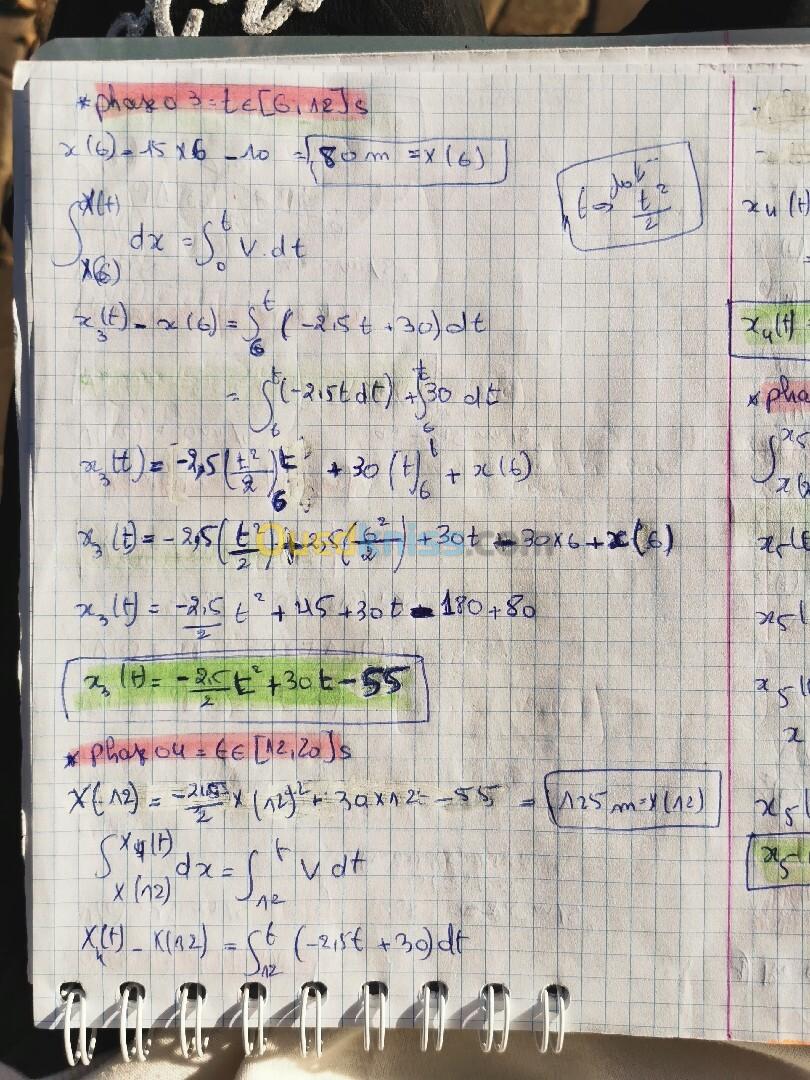 * phase 03 = t ∈ [6, 12] s
x(6) = 15 × 6 - 10 = 80 m = x(6)
t ⇒ t²/2
∫_{x(6)}^{x(t)} dx = ∫_0^t V.dt
x₃(t) - x(6) = ∫_6^t (-2,5t + 30) dt
= ∫_6^t (-2,5t dt) + ∫_6^t 30 dt
x₃(t) = -2,5 (t²/2)_6^t + 30 (t)_6^t + x(6)
x₃(t) = -2,5 (t²/2) + 2,5 (6²/2) + 30t - 30×6 + x(6)
Ouedkniss.com
x₃(t) = -2,5/2 t² + 45 + 30t - 180 + 80
x₃(t) = -2,5/2 t² + 30t - 55
* phase 04 = t ∈ [12, 20] s
X(12) = -2,5/2 × (12)² + 30×12 - 55 = 125 m = x(12)
∫_{X(12)}^{X₄(t)} dx = ∫_{12}^t V dt
X₄(t) - X(12) = ∫_{12}^t (-2,5t + 30) dt
x₄(t)
x₄(t) =
* pha
x₅
x₅(t
x₅(
x₅(
x
x₅(
x₅